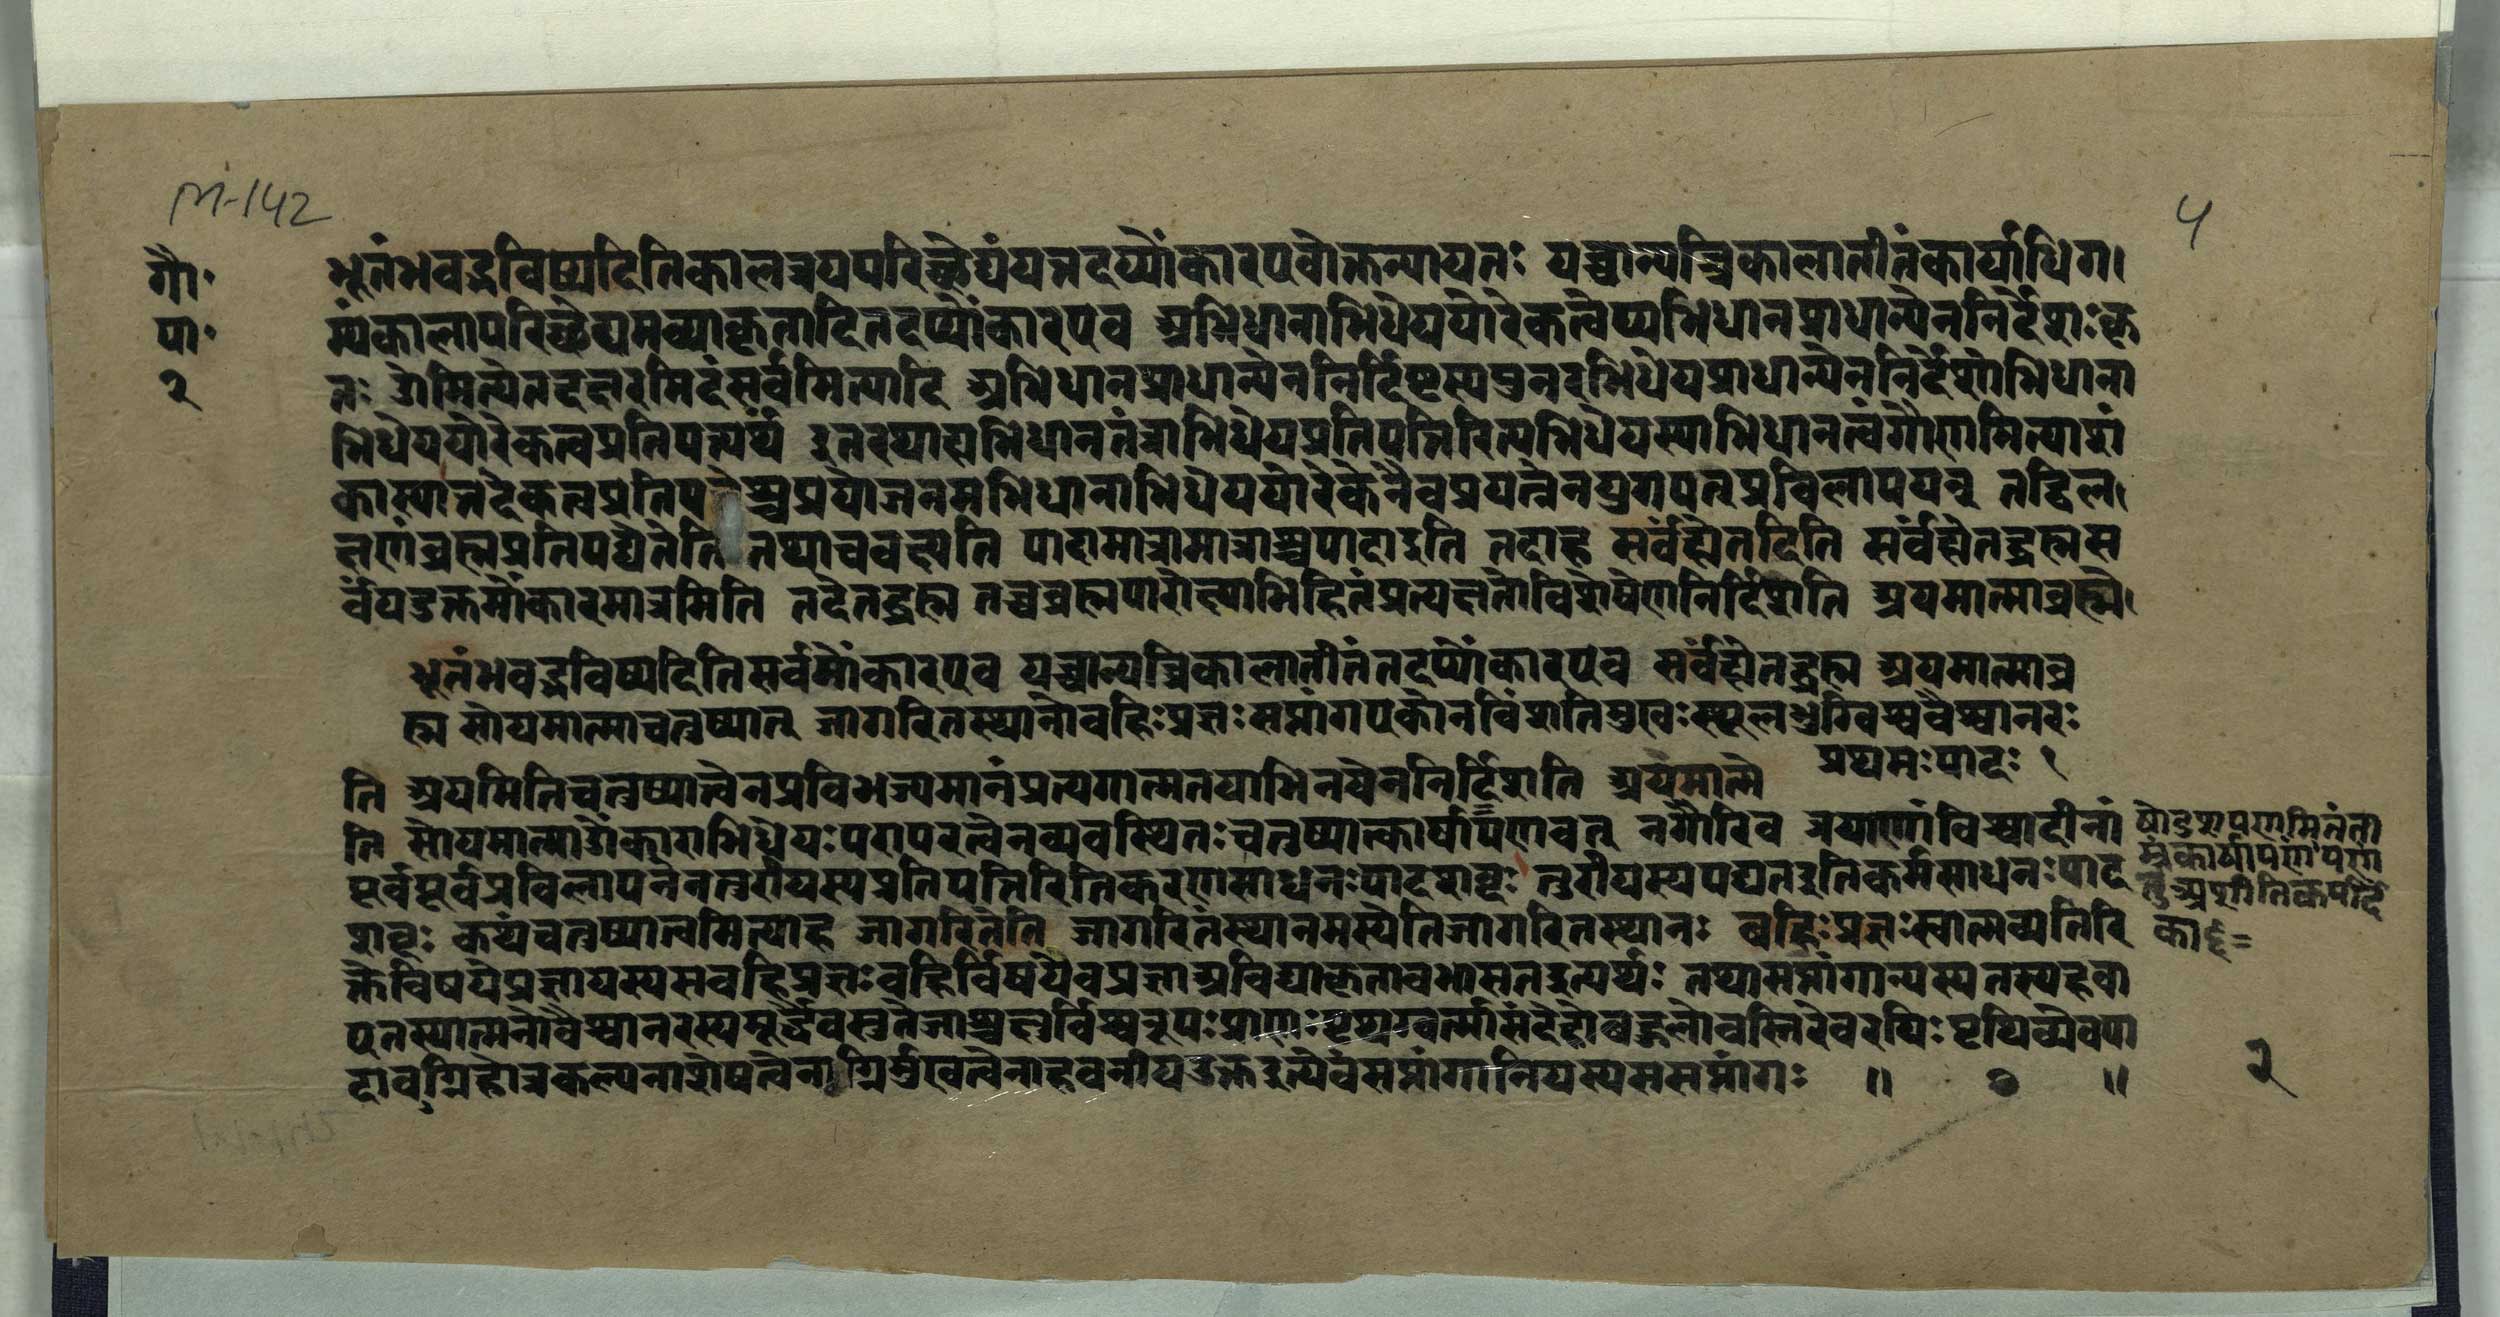 M-142
५
गौ॰
पा॰
२
भूतंभवद्भविष्यदितिकालत्रयपरिच्छेद्यंयत्तदप्योंकारएवोक्तन्यायतः यच्चान्यत्त्रिकालातीतंकार्याधिग
म्यंकालापरिच्छेद्यमव्याकृतादितदप्योंकारएव अभिधानाभिधेययोरेकत्वेप्यभिधानप्राधान्येननिर्देशःकृ
तः ओमित्येतदक्षरमिदंसर्वमित्यादि अभिधानप्राधान्येननिर्दिष्टस्यपुनरभिधेयप्राधान्येननिर्देशोभिधाना
भिधेययोरेकत्वप्रतिपत्त्यर्थं इतरथाह्यभिधानतंत्राभिधेयप्रतिपत्तिरित्यभिधेयस्याभिधानत्वंगौणमित्याशं
कास्यात्तदेकत्वप्रतिपत्तेश्चप्रयोजनमभिधानाभिधेययोरेकेनैवप्रयत्नेनयुगपत्प्रविलापयन् तद्विल
क्षणंब्रह्मप्रतिपद्येतेति तथाचवक्ष्यति पादामात्रामात्राश्चपादाइति तदाह सर्वंह्येतदिति सर्वंह्येतद्ब्रह्मस
र्वंयदुक्तमोंकारमात्रमिति तदेतद्ब्रह्म तच्चब्रह्मपरोक्ष्याभिहितंप्रत्यक्षतोविशेषेणनिर्दिशति अयमात्माब्रह्मे
भूतंभवद्भविष्यदितिसर्वमोंकारएव यच्चान्यत्त्रिकालातीतंतदप्योंकारएव सर्वंह्येतद्ब्रह्म अयमात्माब्र
ह्म सोयमात्माचतुष्पात् जागरितस्थानोबहिःप्रज्ञःसप्तांगएकोनविंशतिमुखःस्थूलभुग्विश्ववैश्वानरः
प्रथमःपादः १
ति अयमितिचतुष्पात्वेनप्रविभज्यमानंप्रत्यगात्मतयाभिनयेननिर्दिशति अयमात्मे
ति सोयमात्माओंकाराभिधेयःपरापरत्वेनव्यवस्थितःचतुष्पात्कार्षापणवत् नगौरिव त्रयाणांविश्वादीनां
पूर्वपूर्वप्रविलापनेनतुरीयस्यप्रतिपत्तिरितिकरणसाधनःपादशब्दः तुरीयस्यपद्यतइतिकर्मसाधनःपाद
शब्दः कथंचतुष्पात्वमित्याह जागरितेति जागरितंस्थानमस्येतिजागरितस्थानः बहिःप्रज्ञःस्वात्मव्यतिरि
क्तेविषयेप्रज्ञायस्यसबहिप्रज्ञःबहिर्विषयेवप्रज्ञाअविद्याकृतावभासतइत्यर्थः तथासप्तांगान्यस्यतस्यहवा
एतस्यात्मनोवैश्वानरस्यमूर्द्धैवसुतेजाश्चक्षुर्विश्वरूपःप्राणःपृथग्वर्त्मासंदेहोबहुलोबस्तिरेवरयिः पृथिव्येवपा
दावग्निहोत्रकल्पनाशेषत्वेनाग्निर्मुखत्वेनाहवनीयउक्तइत्येवंसप्तांगानियस्यससप्तांगः ॥ ॥
षोडशपणमितंता
म्रंकार्षापणं पण
स्तुअशीतिकपर्दि
का
२